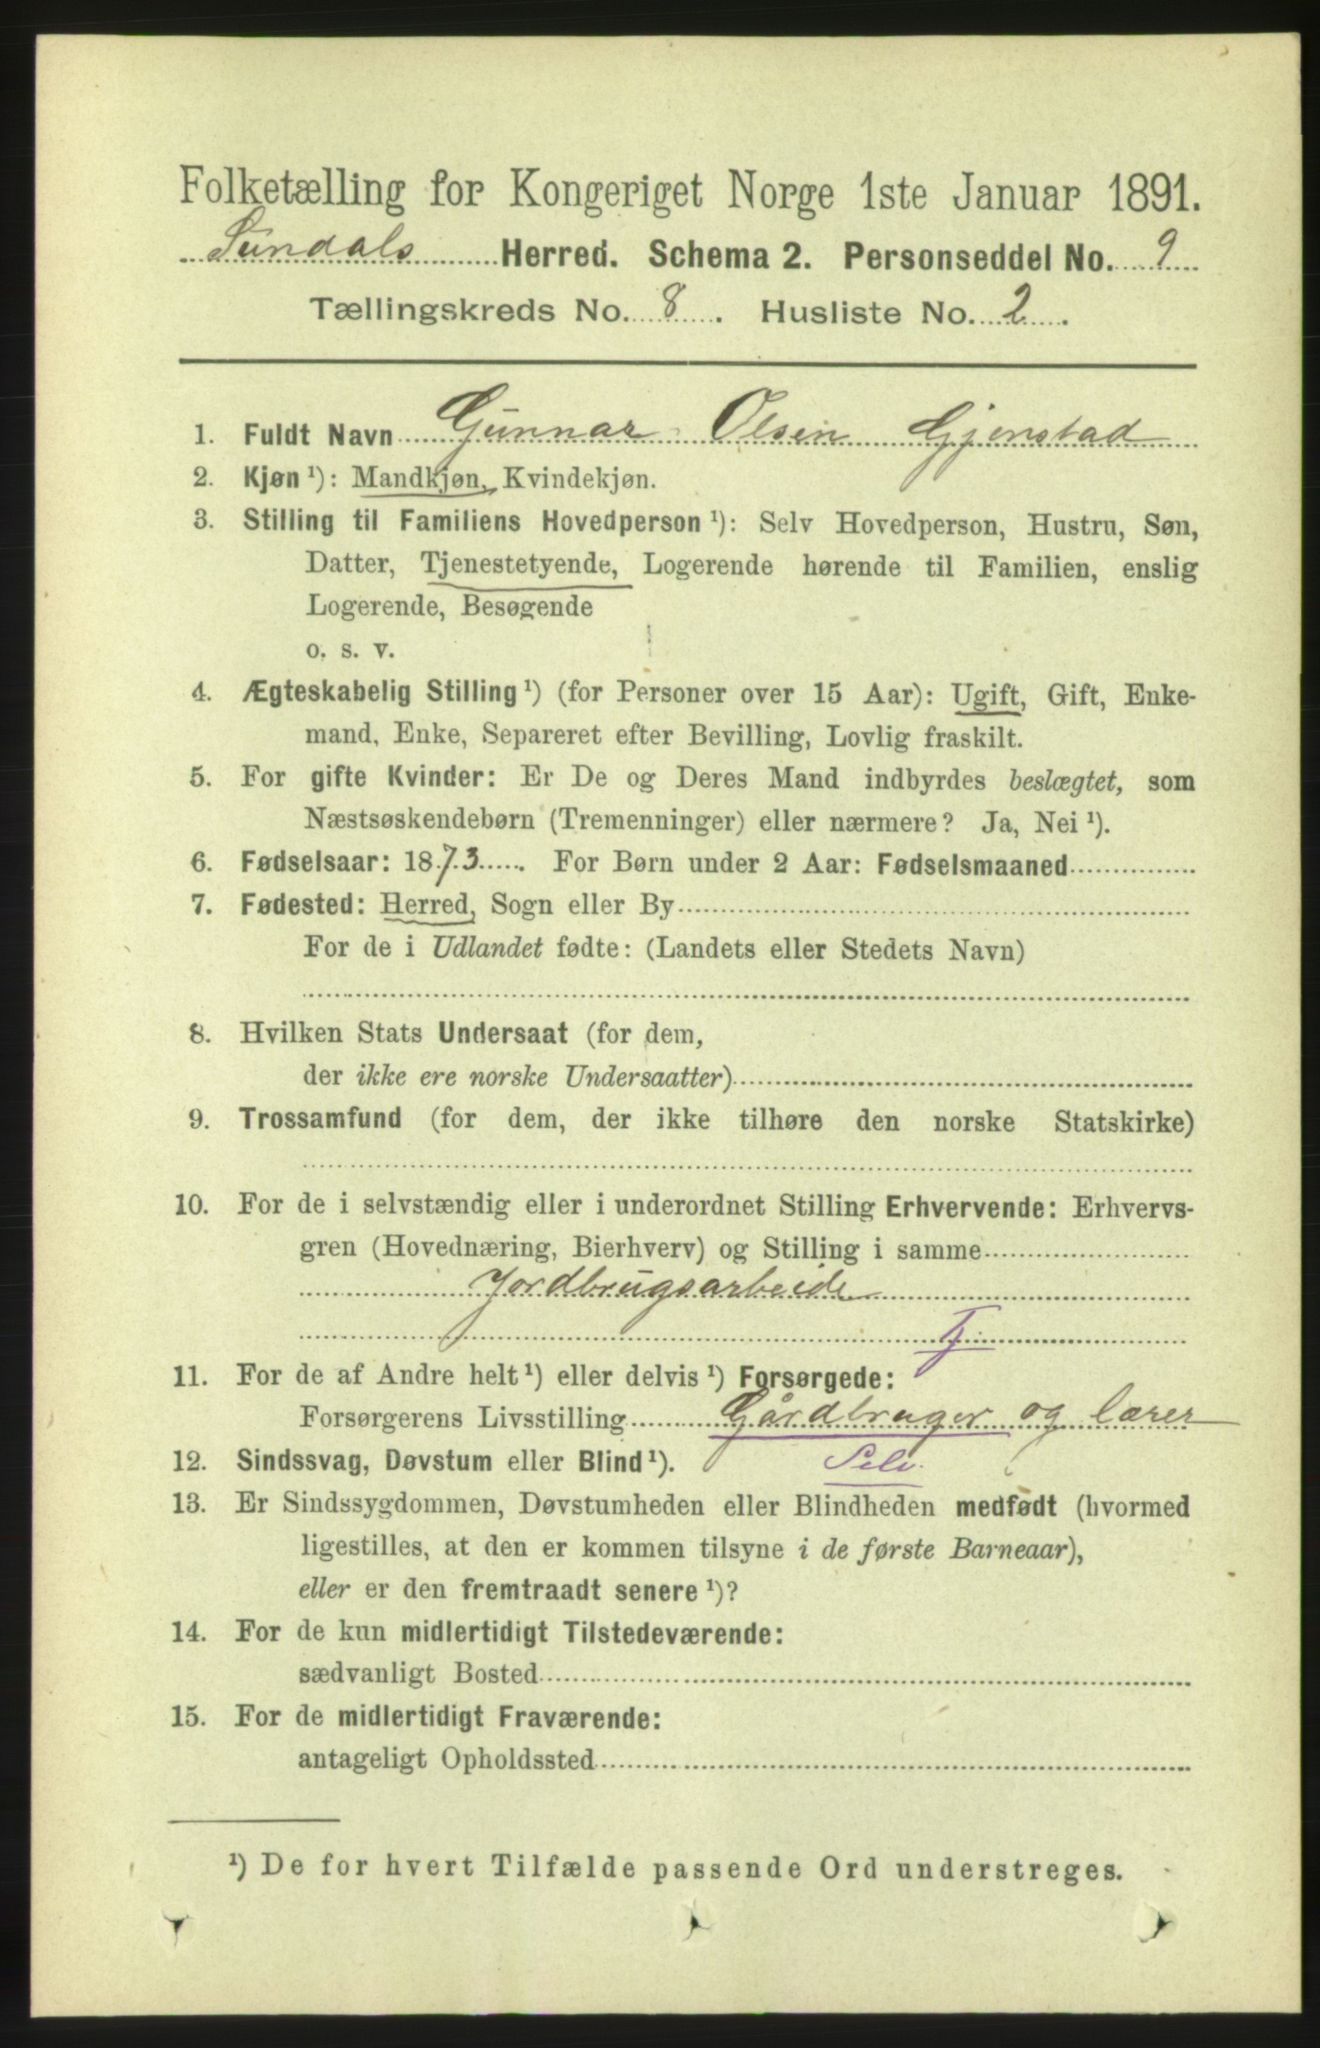 Folketælling for Kongeriget Norge 1ste Januar 1891.
Sundals Herred. Schema 2. Personseddel No. 9
Tællingskreds No. 8. Husliste No. 2.
1. Fuldt Navn Gunnar Olsen Gjenstad
2. Kjøn ¹): Mandkjøn, Kvindekjøn.
3. Stilling til Familiens Hovedperson ¹): Selv Hovedperson, Hustru, Søn,
Datter, Tjenestetyende, Logerende hørende til Familien, enslig
Logerende, Besøgende
o. s. v.
4. Ægteskabelig Stilling ¹) (for Personer over 15 Aar): Ugift, Gift, Enke-
mand, Enke, Separeret efter Bevilling, Lovlig fraskilt.
5. For gifte Kvinder: Er De og Deres Mand indbyrdes beslægtet, som
Næstsøskendebørn (Tremenninger) eller nærmere? Ja, Nei ¹).
6. Fødselsaar: 1873. For Børn under 2 Aar: Fødselsmaaned
7. Fødested: Herred, Sogn eller By
For de i Udlandet fødte: (Landets eller Stedets Navn)
8. Hvilken Stats Undersaat (for dem,
der ikke ere norske Undersaatter)
9. Trossamfund (for dem, der ikke tilhøre den norske Statskirke)
10. For de i selvstændig eller i underordnet Stilling Erhvervende: Erhvervs-
gren (Hovednæring, Bierhverv) og Stilling i samme
Jordbrugsarbeide
Tj
11. For de af Andre helt ¹) eller delvis ¹) Forsørgede:
Forsørgerens Livsstilling Gårdbruger og lærer
12. Sindssvag, Døvstum eller Blind ¹). Selv.
13. Er Sindssygdommen, Døvstumheden eller Blindheden medfødt (hvormed
ligestilles, at den er kommen tilsyne i de første Barneaar),
eller er den fremtraadt senere ¹)?
14. For de kun midlertidigt Tilstedeværende:
sædvanligt Bosted
15. For de midlertidigt Fraværende:
antageligt Opholdssted
¹) De for hvert Tilfælde passende Ord understreges.